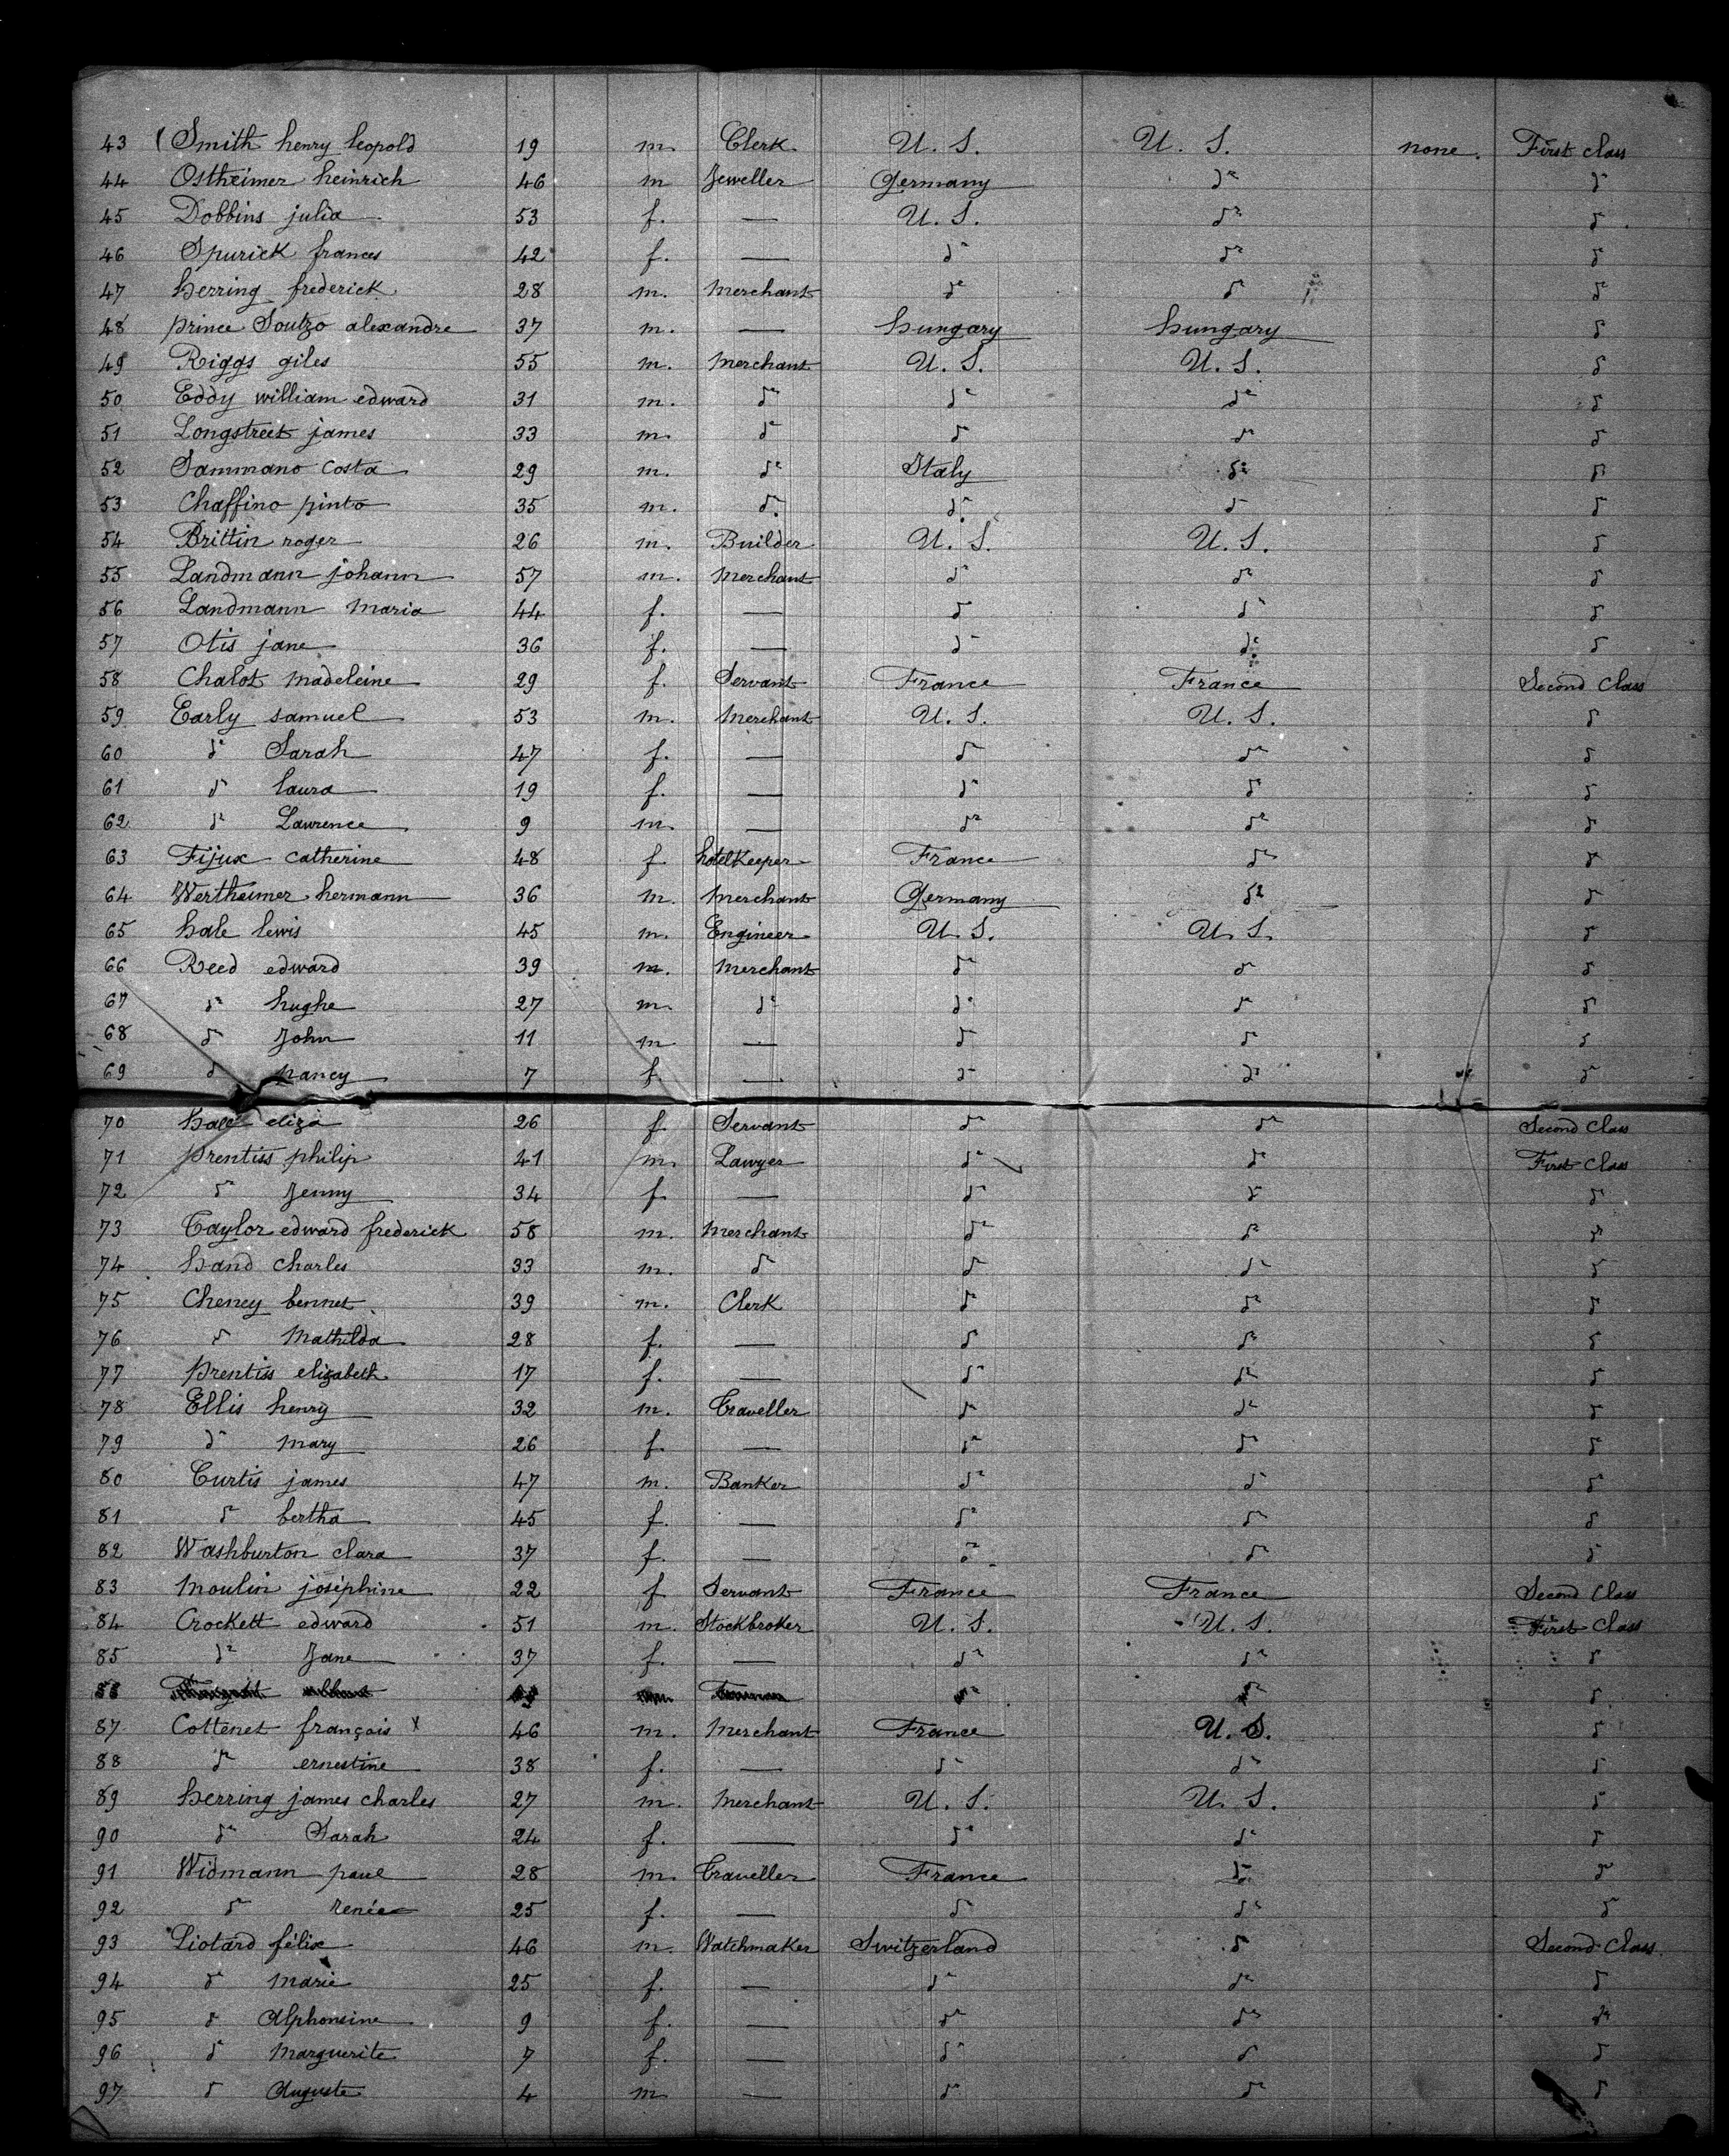 43 Smith henry leopold 19 m. Clerk U. S. U. S. none. First class
44 Ostheimer heinrich 46 m Jeweller Germany do do
45 Dobbins julia 53 f. — U. S. do do
46 Spurick frances 42 f. — do do do
47 herring frederick 28 m. merchant do do do
48 prince Soutzo alexandre 37 m. — hungary hungary do
49 Riggs giles 55 m. merchant U. S. U. S. do
50 Eddy william edward 31 m. do do do do
51 Longstreet james 33 m. do do do do
52 Sammano Costa 29 m. do Italy do do
53 Chaffino pinto 35 m. do do do do
54 Brittin roger 26 m. Builder U. S. U. S. do
55 Landmann johann 57 m. merchant do do do
56 Landmann maria 44 f. — do do do
57 Otis jane 36 f. — do do do
58 Chalot madeleine 29 f. Servant France France Second Class
59 Early samuel 53 m. merchant U. S. U. S. do
60 do Sarah 47 f. — do do do
61 do laura 19 f. — do do do
62 do Lawrence 9 m. — do do do
63 Fijux catherine 48 f. hotelKeeper France do do
64 Wertheimer hermann 36 m. merchant Germany do do
65 hale lewis 45 m. Engineer U. S. U. S. do
66 Reed edward 39 m. merchant do do do
67 do hughe 27 m. do do do do
68 do John 11 m — do do do
69 do nancy 7 f. — do do do
70 hale eliza 26 f. Servant do do Second Class
71 prentiss philip 41 m. Lawyer do do First Class
72 do Jenny 34 f. — do do do
73 Taylor edward frederick 58 m. merchant do do do
74 hand charles 33 m. do do do do
75 Cheney bennet 39 m. Clerk do do do
76 do mathilda 28 f. — do do do
77 prentiss elizabeth 17 f. — do do do
78 Ellis henry 32 m. Traveller do do do
79 do mary 26 f. — do do do
80 Curtis james 47 m. Banker do do do
81 do bertha 45 f. — do do do
82 Washburton clara 37 f. — do do do
83 moulin joséphine 22 f Servant France France Second Class
84 Crockett edward 51 m. Stockbroker U. S. U. S. First Class
85 do Jane 37 f. — do do do
86 do do do
87 Cottenet françois x 46 m. merchant France U. S. do
88 do ernestine 38 f. — do do do
89 herring james charles 27 m. merchant U. S. U. S. do
90 do Sarah 24 f. — do do do
91 Widmann paul 28 m. Traveller France do do
92 do renée 25 f. — do do do
93 Liotard félix 46 m. Watchmaker Switzerland do Second Class.
94 do marie 25 f. — do do do
95 do Alphonsine 9 f. — do do do
96 do marguerite 7 f. — do do do
97 do Auguste 4 m — do do do